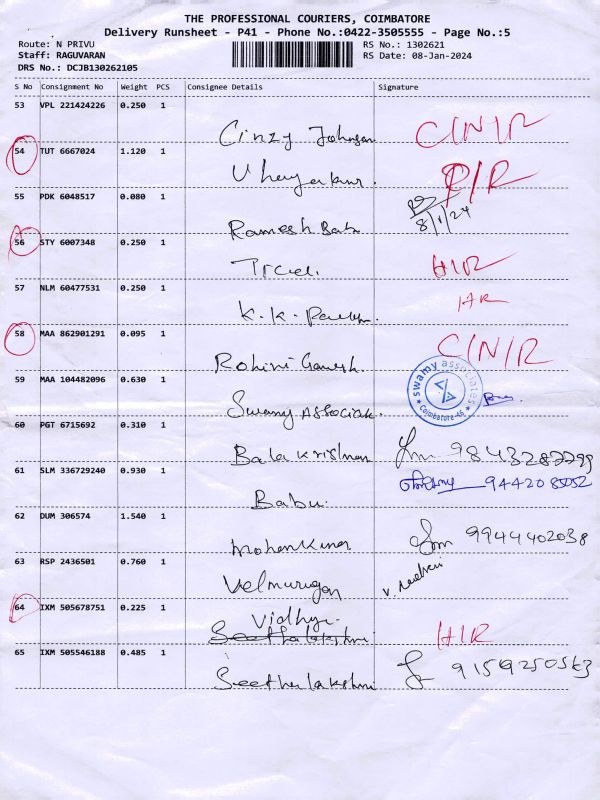 THE PROFESSIONAL COURIERS, COIMBATORE
Delivery Runsheet - P41 - Phone No.:0422-3505555 - Page No.:5
Route: N PRIVU RS No.: 1302621
Staff: RAGUVARAN RS Date: 08-Jan-2024
DRS No.: DCJB130262105
S No Consignment No Weight PCS Consignee Details Signature
53 VPL 221424226 0.250 1
Cinzy Johnson C/N/R
54 TUT 6667024 1.120 1
Uhayakumar. R/R
55 PDK 6048517 0.080 1
Ramesh Babu 8/1/24
56 STY 6007348 0.250 1
H/R
57 NLM 60477531 0.250 1
K.K. HR
58 MAA 862901291 0.095 1
Rohini Ganesh C/N/R
59 MAA 104482096 0.630 1
Swamy Associate. swamy associates Coimbatore-45
60 PGT 6715692 0.310 1
Bala Krishnan 9843287799
61 SLM 336729240 0.930 1
Babu. 9442085052
62 DUM 306574 1.540 1
Mohan Kumar 9944402038
63 RSP 2436501 0.760 1
Velmurugan
64 IXM 505678751 0.225 1
Vidhya.
Seethalakshmi H/R
65 IXM 505546188 0.485 1
Seethalakshmi 9159250563